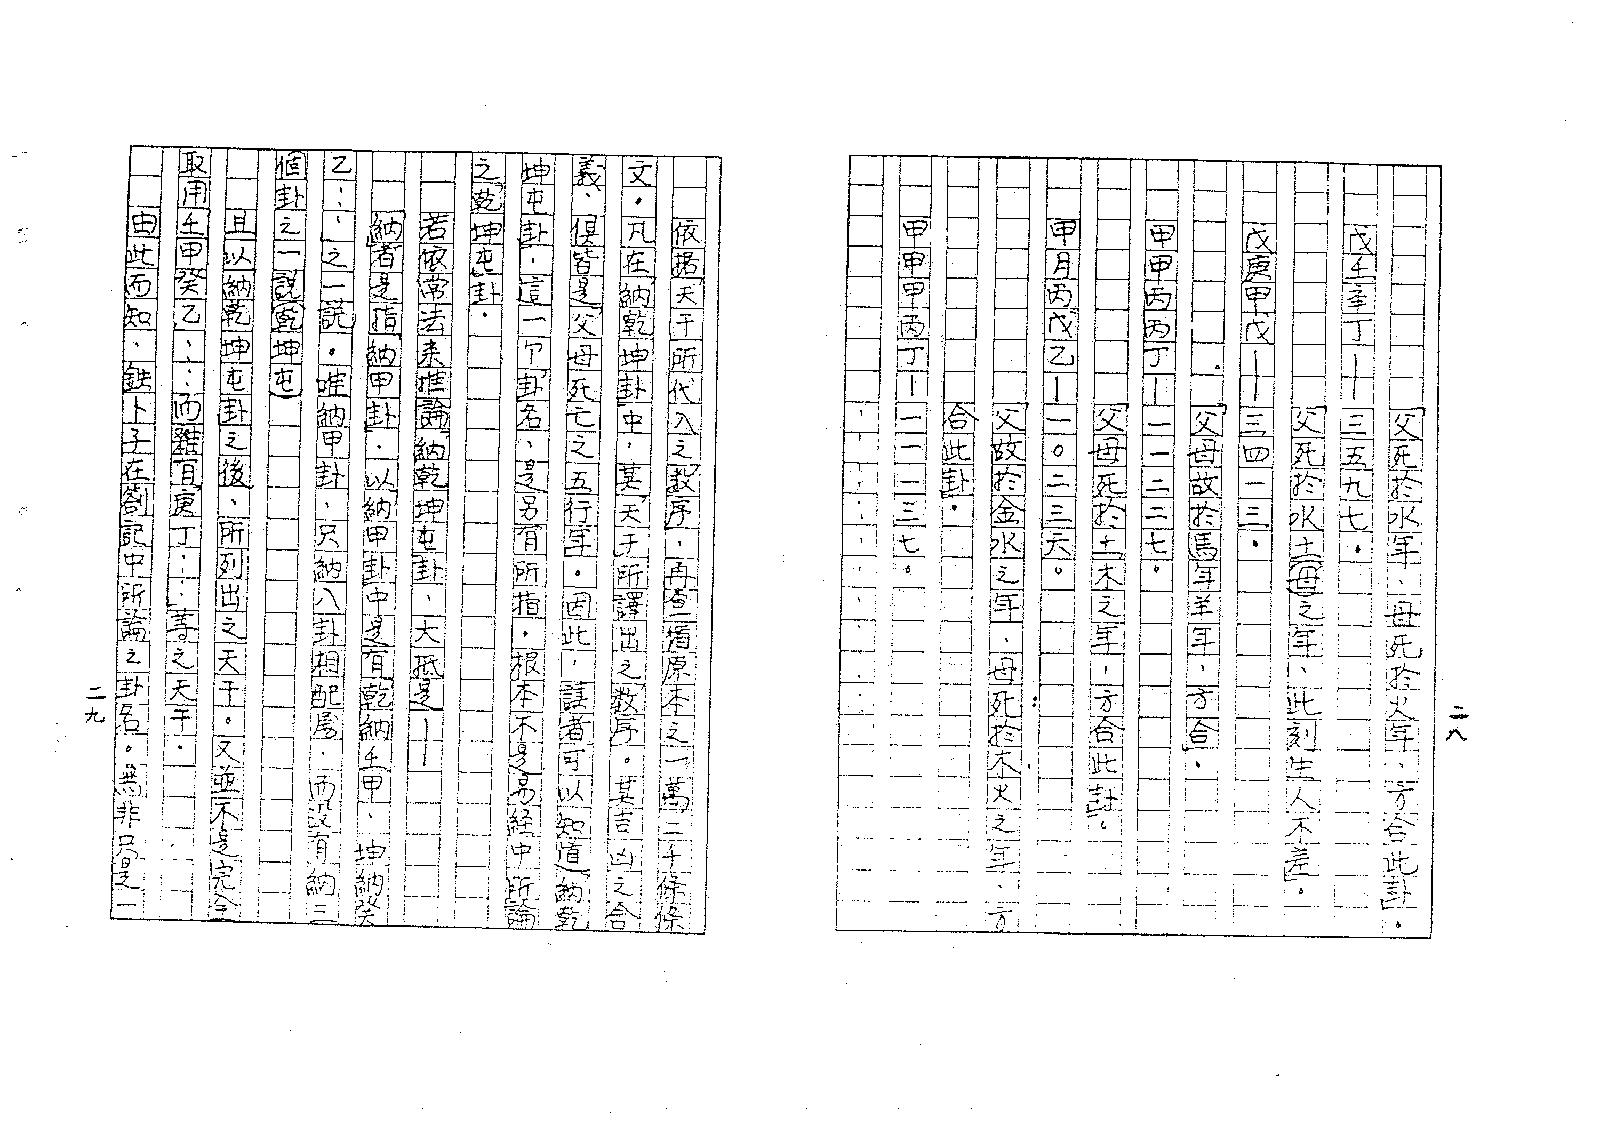 二八
父死於水年、母死於火年、方合此卦。
戊壬辛丁——三五九七。
父死於水土母之年、此刻生人不差。
戊庚甲戊——三四一三。
父母故於馬年羊年，方合。
甲甲丙丙丁—一一二二七。
父母死於土木之年，方合此卦。
甲月丙戊乙—一〇二三六。
父故於金水之年，母死於木火之年、方
合此卦。
甲甲甲丙丁—一一一三七。
依据天干所代入之数序，再查一當原本之一萬二千條條
文。凡在納乾坤卦中，其天干所譯出之数序。其吉凶之含
義、俱皆是父母死亡之五行年。因此，讀者可以知道納乾
坤屯卦，這一个卦名、是另有所指，根本不是易経中所論
之乾坤屯卦。
若依常法来推論納乾坤屯卦、大抵是——
納者是指納甲卦，以納甲卦中是有乾納壬甲、坤納癸
乙……之一說。唯納甲卦、只納八卦相配寫，而没有納三
個卦之一說（乾坤屯）
且以納乾坤屯卦之後、所列出之天干。又並不是完全
取用壬甲癸乙……而雜有庚丁……等之天干。
由此而知、鉄卜子在劄記中所論之卦名。無非只是一
二九